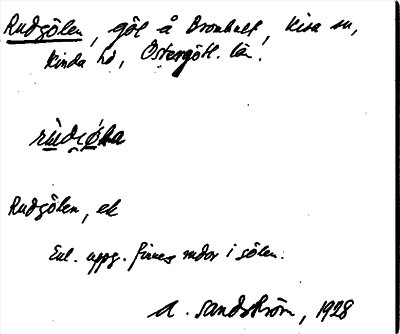 Rudgölen, göl å Bronhult, Kisa sn,
Kinda hd, Östergötl. län.
Rudgölen, ek
Enl. uppg. finnes rudor i gölen.
A. Sandström, 1928